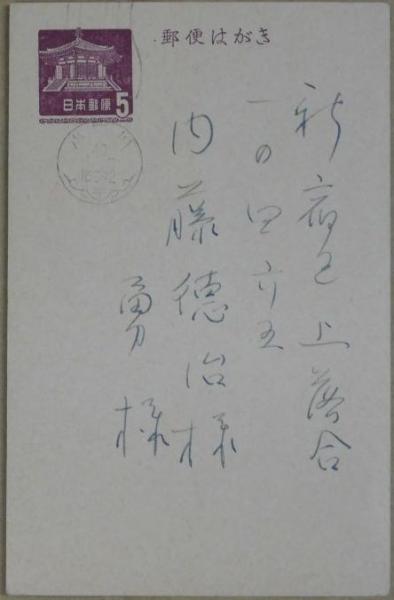 郵便はがき
日本郵便
5
新宿区上落合
一の四六五
内藤徳治様
勇様